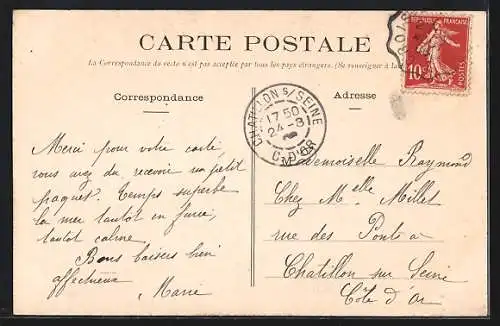 CARTE POSTALE
La Correspondance au recto n'est pas acceptée par tous les pays étrangers. (Se renseigner à la
Correspondance
Adresse
RÉPUBLIQUE FRANÇAISE
10c
POSTES
CHATILLON S/ SEINE
17 50
24 - 8
C. D'OR
Merci pour votre carte,
vous avez du recevoir un petit
paquet. Temps superbe
la mer tantot en furie,
tantot calme.
Bons baisers bien
affectueux
Marie
Mademoiselle Raymond
Chez Melle Millet
rue des Ponts a
Chatillon sur Seine
Côte d'Or